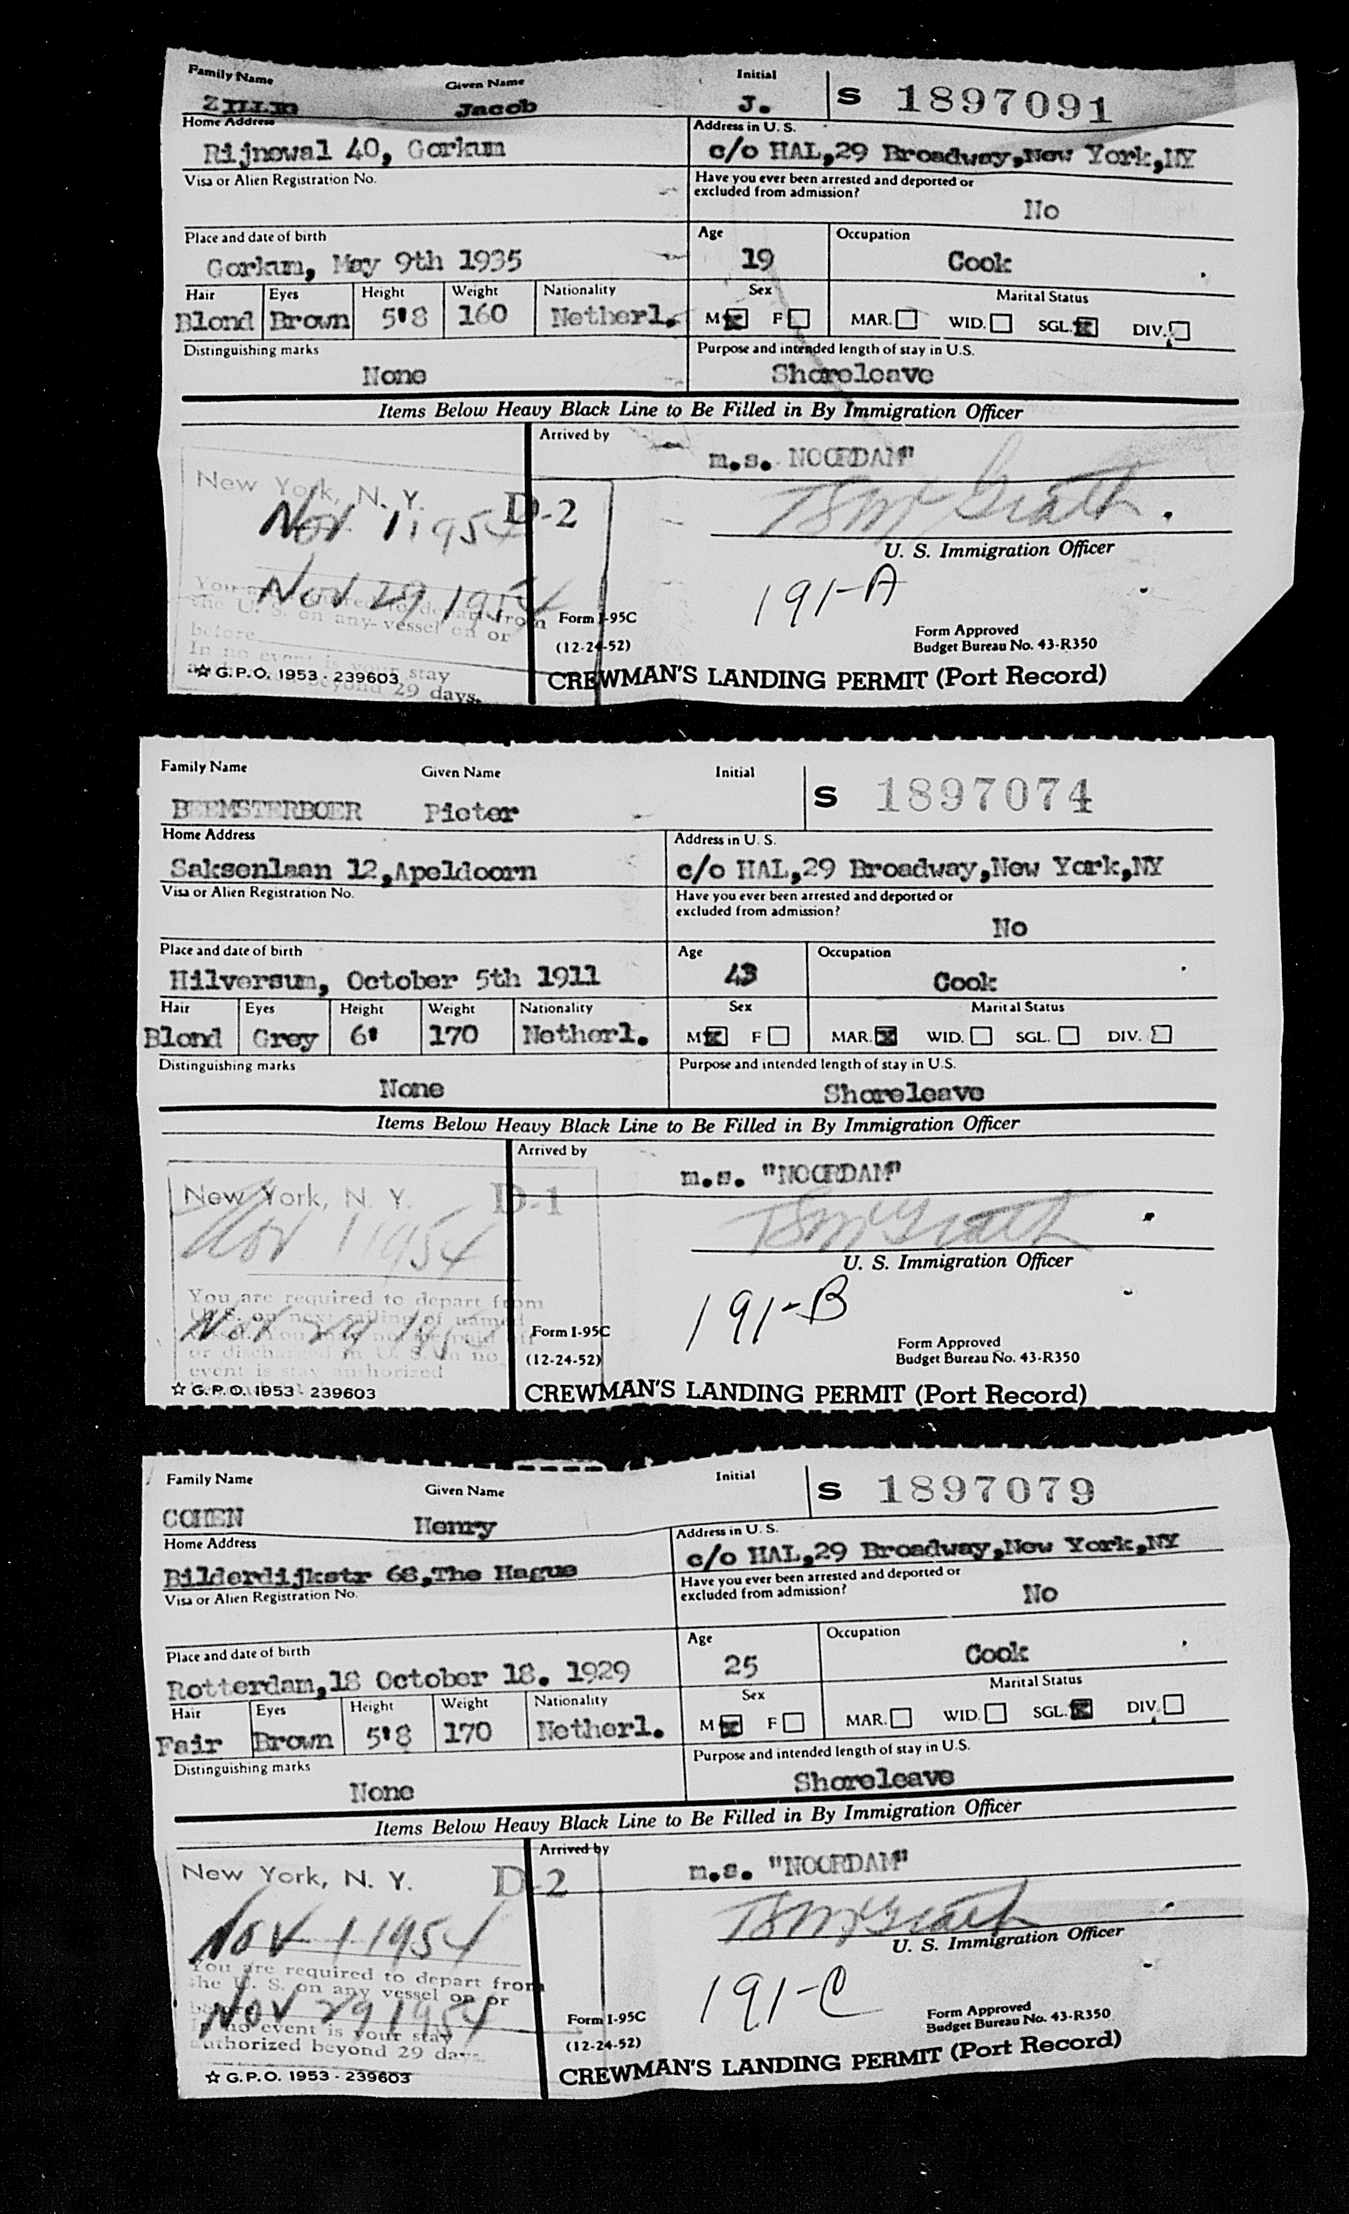 Family Name Given Name Initial S 1897091
Jacob J.
Home Address Address in U. S.
Rijnowal 40, Gorkum c/o HAL,29 Broadway,New York,NY
Visa or Alien Registration No. Have you ever been arrested and deported or
excluded from admission?
No
Place and date of birth Age Occupation
Gorkum, May 9th 1935 19 Cook
Hair Eyes Height Weight Nationality Sex Marital Status
Blond Brown 5'8 160 Netherl. M F MAR. WID. SGL. DIV.
Distinguishing marks Purpose and intended length of stay in U.S.
None Shoreleave
Items Below Heavy Black Line to Be Filled in By Immigration Officer
Arrived by
m.s. NOORDAM"
New York, N. Y. D-2
Nov. 1 1954 TSMcGrath
U. S. Immigration Officer
Nov 29 1954 191-A
the U. S. on any vessel on or
before
Form I-95C Form Approved
(12-24-52) Budget Bureau No. 43-R350
In no event is your stay
beyond 29 days.
☆ G.P.O. 1953 - 239603 CREWMAN'S LANDING PERMIT (Port Record)
Family Name Given Name Initial S 1897074
BEEMSTERBOER Pieter
Home Address Address in U. S.
Saksenlaan 12,Apeldoorn c/o HAL,29 Broadway,New York,NY
Visa or Alien Registration No. Have you ever been arrested and deported or
excluded from admission?
No
Place and date of birth Age Occupation
Hilversum, October 5th 1911 43 Cook
Hair Eyes Height Weight Nationality Sex Marital Status
Blond Grey 6' 170 Netherl. M F MAR. WID. SGL. DIV.
Distinguishing marks Purpose and intended length of stay in U.S.
None Shoreleave
Items Below Heavy Black Line to Be Filled in By Immigration Officer
Arrived by
m.s. "NOORDAM"
New York, N. Y. D-1
Nov 1 1954 TSMcGrath
U. S. Immigration Officer
You are required to depart from
U. S. on next sailing of named
Nov 29 195 191-B
or discharged in U. S. In no
event is stay authorized
Form I-95C Form Approved
(12-24-52) Budget Bureau No. 43-R350
☆ G.P.O. 1953 - 239603 CREWMAN'S LANDING PERMIT (Port Record)
Family Name Given Name Initial S 1897079
COHEN Henry
Home Address Address in U. S.
Bilderdijkstr 68,The Hague c/o HAL,29 Broadway,New York,NY
Visa or Alien Registration No. Have you ever been arrested and deported or
excluded from admission?
No
Place and date of birth Age Occupation
Rotterdam,18 October 18. 1929 25 Cook
Hair Eyes Height Weight Nationality Sex Marital Status
Fair Brown 5'8 170 Netherl. M F MAR. WID. SGL. DIV.
Distinguishing marks Purpose and intended length of stay in U.S.
None Shoreleave
Items Below Heavy Black Line to Be Filled in By Immigration Officer
Arrived by
m.s. "NOORDAM"
New York, N. Y. D-2
Nov 1 1954 TSMcGrath
U. S. Immigration Officer
You are required to depart from
the U. S. on any vessel on or
Nov 29 1954 191-C
no event is your stay
authorized beyond 29 days.
Form I-95C Form Approved
(12-24-52) Budget Bureau No. 43-R350
☆ G.P.O. 1953 - 239603 CREWMAN'S LANDING PERMIT (Port Record)